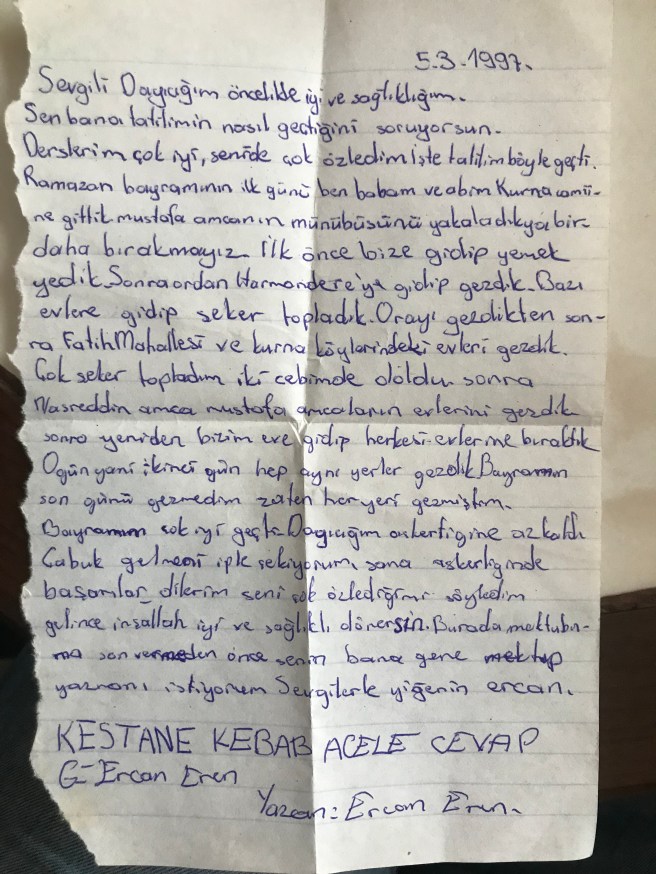 5.3.1997.
Sevgili Dayıcığım öncelikle iyi ve sağlıklığım.
Sen bana tatilimin nasıl geçtiğini soruyorsun.
Derslerim çok iyi, senide çok özledim işte tatilim böyle geçti.
Ramazan bayramının ilk günü ben babam ve abim Kurna camii-
ne gittik mustafa amcanın münübüsünü yakaladıkya bir-
daha bırakmayız. İlk önce bize gidip yemek
yedik. Sonra ordan Harmandere'ye gidip gezdik. Bazı
evlere gidip seker topladık. Orayı gezdikten son-
ra Fatih Mahallesi ve kurna köylerindeki evleri gezdik.
Çok seker topladım iki cebimde doldu sonra
Nasreddin amca mustafa amcaların evlerini gezdik
sonra yeniden bizim eve gidip herkesi evlerine bıraktık
Ogün yani ikinci gün hep aynı yerler gezdik Bayramın
son günü gezmedim zaten her yeri gezmiştim.
Bayramım çok iyi geçti. Dayıcığım askerliğine az kaldı
Cabuk gelmeni iple çekiyorum, sana askerliğinde
başarılar dilerim seni çok özlediğimi söyledim
gelince inşallah iyi ve sağlıklı dönersin. Burada mektubu-
ma son vermeden önce senin bana gene mektup
yazmanı istiyorum Sevgilerle yiğenin ercan.
KESTANE KEBAB ACELE CEVAP
G- Ercan Eren
Yazan: Ercan Eren.